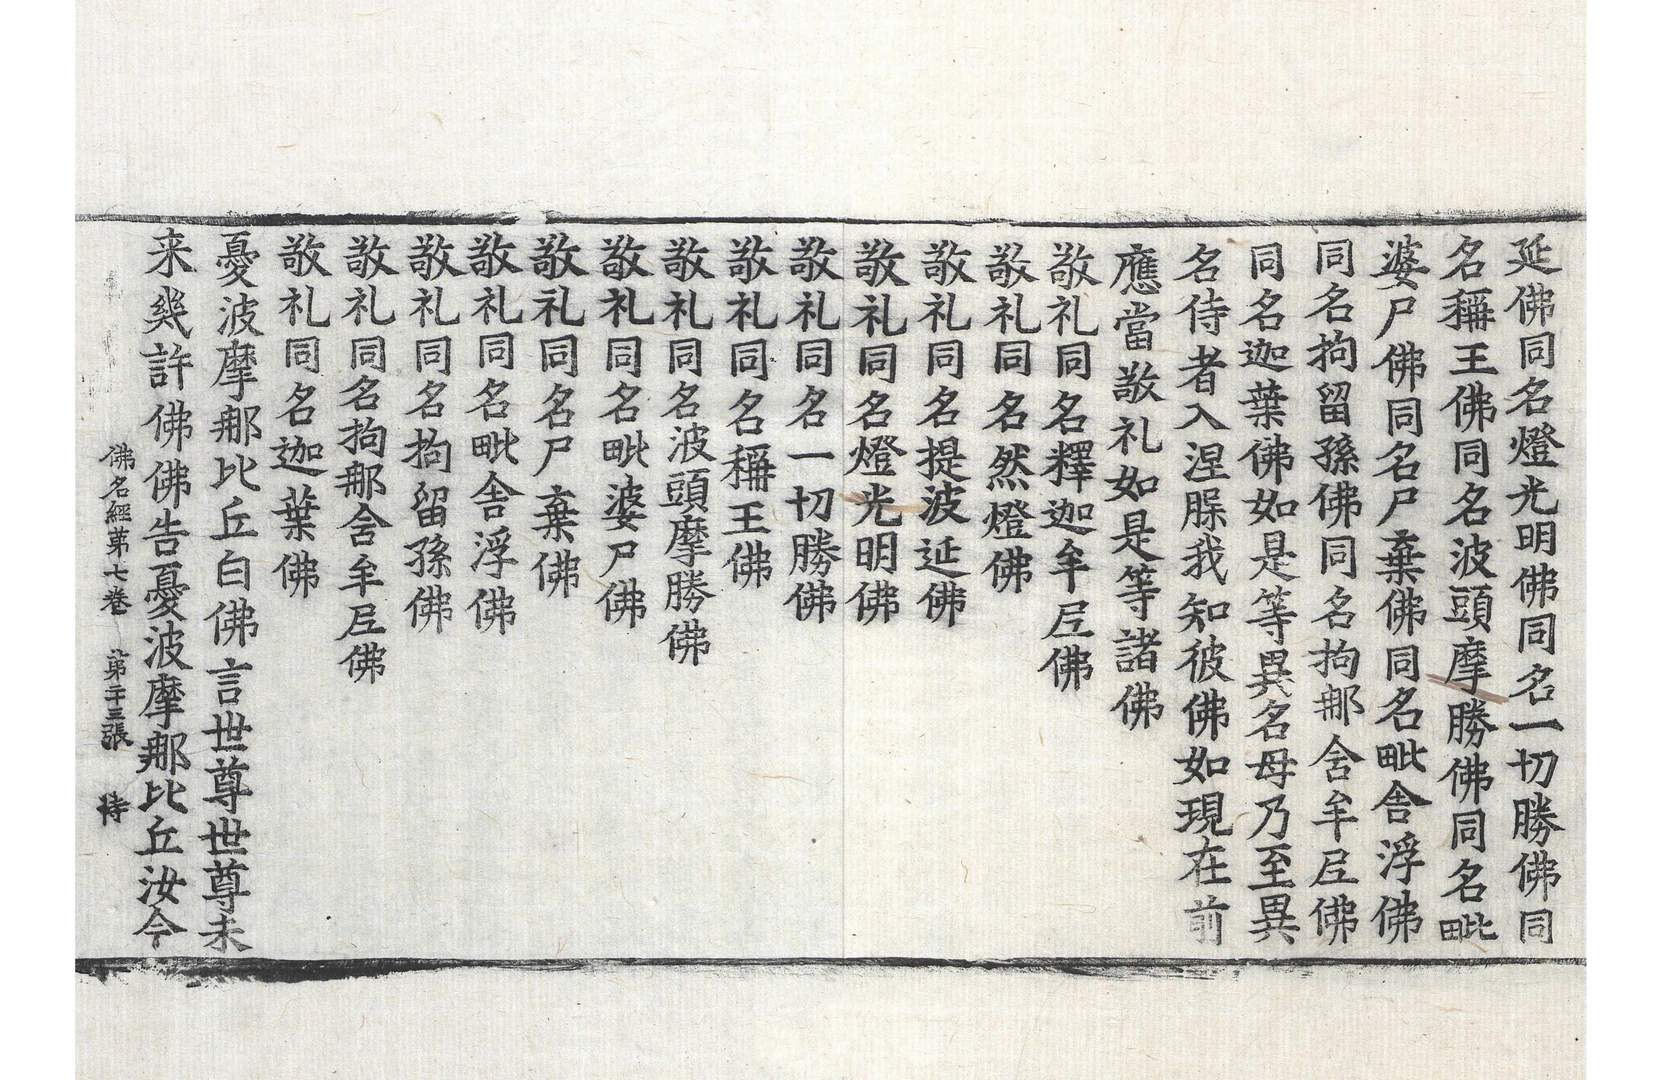 延佛同名燈光明佛同名一切勝佛同
名稱王佛同名波頭摩勝佛同名毗
婆尸佛同名尸棄佛同名毗舍浮佛
同名拘留孫佛同名拘那含牟尼佛
同名迦葉佛如是等異名母乃至異
名侍者入涅脲我知彼佛如現在前
應當敬礼如是等諸佛
敬礼同名釋迦牟尼佛
敬礼同名然燈佛
敬礼同名提波延佛
敬礼同名燈光明佛
敬礼同名一切勝佛
敬礼同名稱王佛
敬礼同名波頭摩勝佛
敬礼同名毗婆尸佛
敬礼同名尸棄佛
敬礼同名毗舍浮佛
敬礼同名拘留孫佛
敬礼同名拘那含牟尼佛
敬礼同名迦葉佛
憂波摩那比丘白佛言世尊世尊未
来幾許佛佛告憂波摩那比丘汝今
佛名經苐七卷 苐二十三張 特